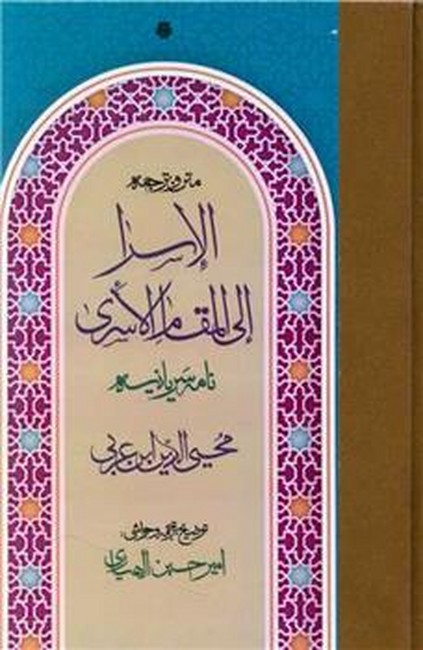 متن و ترجمه
الإسرا
إلى المقام الأسرى
نامه سریانیه
محیی الدین ابن عربی
توضیح، ترجمه و حواشی:
امیرحسین اللهیاری